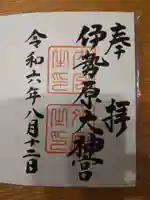 奉拝
伊勢原大神宮
令和六年八月十二日